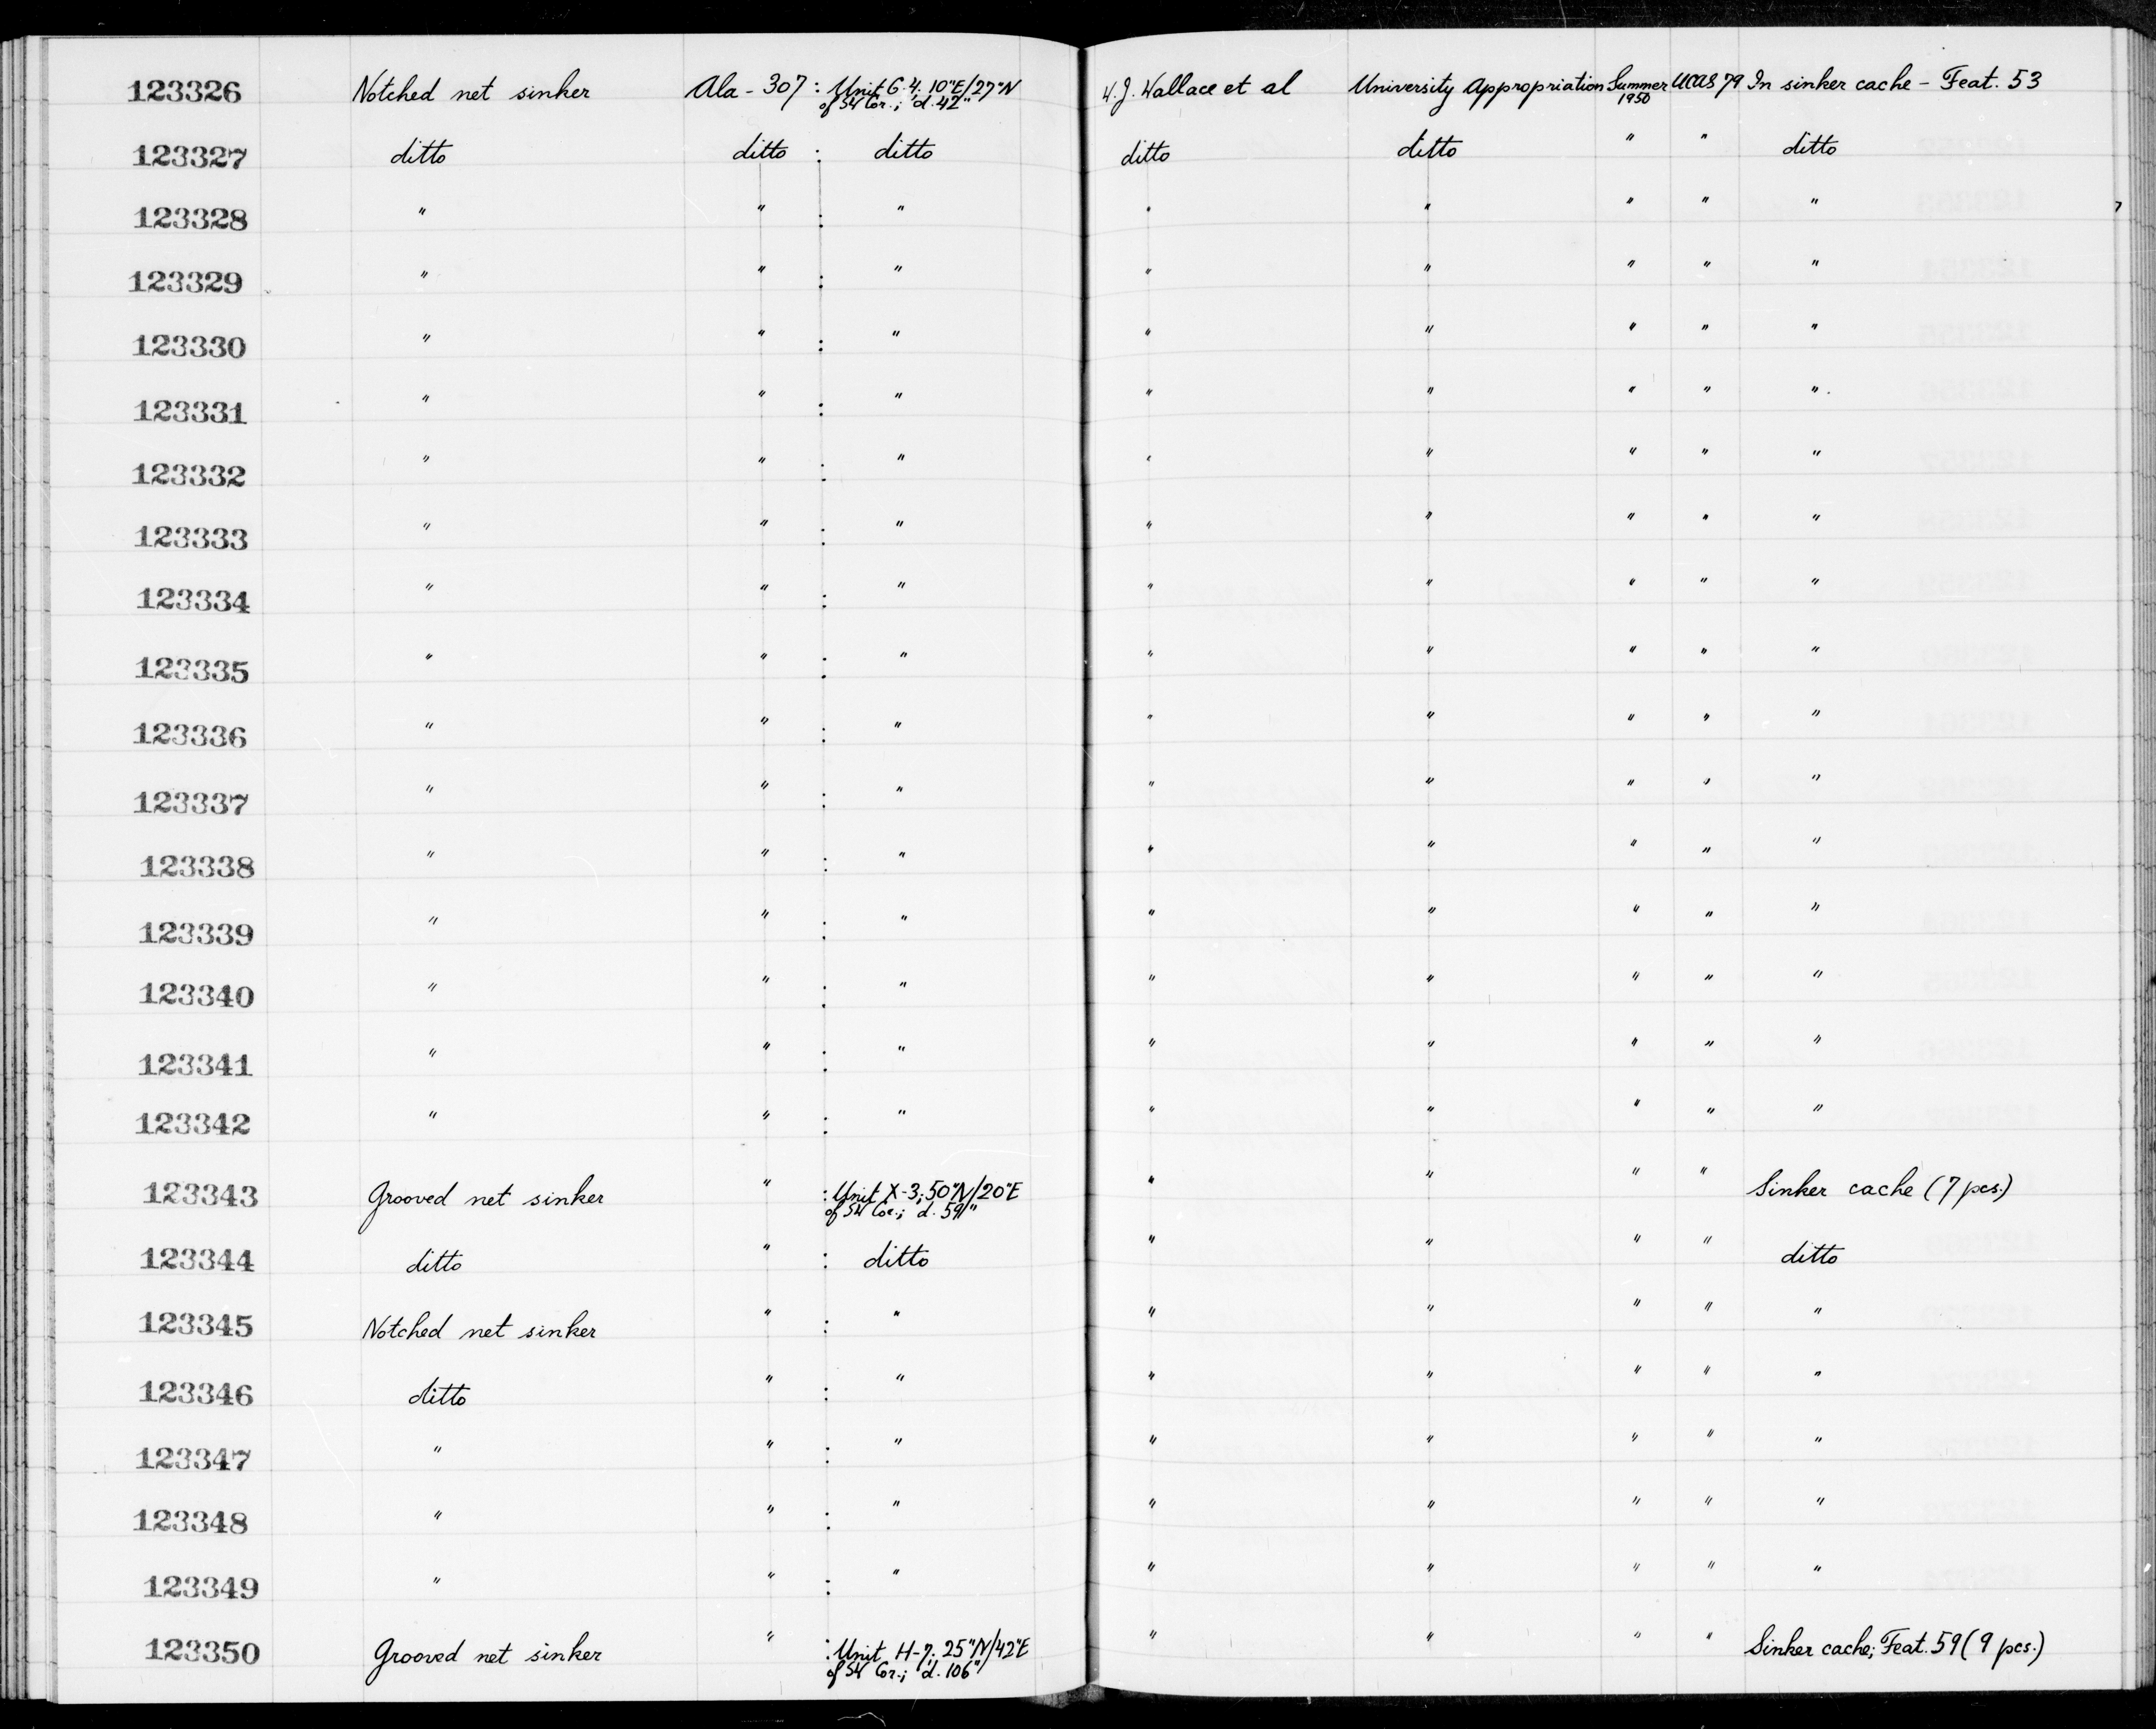 123326 Notched net sinker Ala - 307 : Unit G-4; 10"E/27"N of SW Cor.; d. 42" W.J. Wallace et al University Appropriation Summer 1950 UCAS 79 In sinker cache - Feat. 53
123327 ditto ditto : ditto ditto ditto " " ditto
123328 " " : " " " " " "
123329 " " : " " " " " "
123330 " " : " " " " " "
123331 " " : " " " " " "
123332 " " : " " " " " "
123333 " " : " " " " " "
123334 " " : " " " " " "
123335 " " : " " " " " "
123336 " " : " " " " " "
123337 " " : " " " " " "
123338 " " : " " " " " "
123339 " " : " " " " " "
123340 " " : " " " " " "
123341 " " : " " " " " "
123342 " " : " " " " " "
123343 Grooved net sinker " : Unit X-3; 50"N/20"E of SW Cor.; d. 59" " " " " Sinker cache (7 pcs.)
123344 ditto " : ditto " " " " ditto
123345 Notched net sinker " : " " " " " "
123346 ditto " : " " " " " "
123347 " " : " " " " " "
123348 " " : " " " " " "
123349 " " : " " " " " "
123350 Grooved net sinker " : Unit H-7; 25"N/42"E of SW Cor.; d. 106" " " " " Sinker cache; Feat. 59 (9 pcs.)